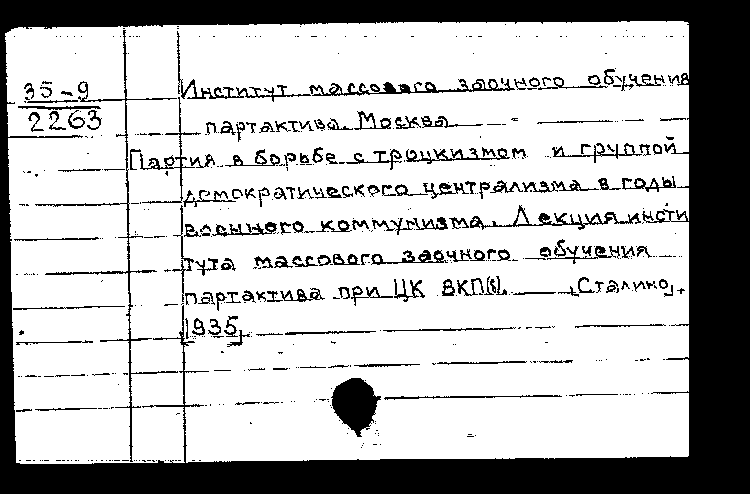 35-9
2263
Институт массового заочного обучения
партактива. Москва
Партия в борьбе с троцкизмом и группой
демократического централизма в годы
военного коммунизма. Лекция инсти
тута массового заочного обучения
партактива при ЦК ВКП(б). [Сталино],
[1935]